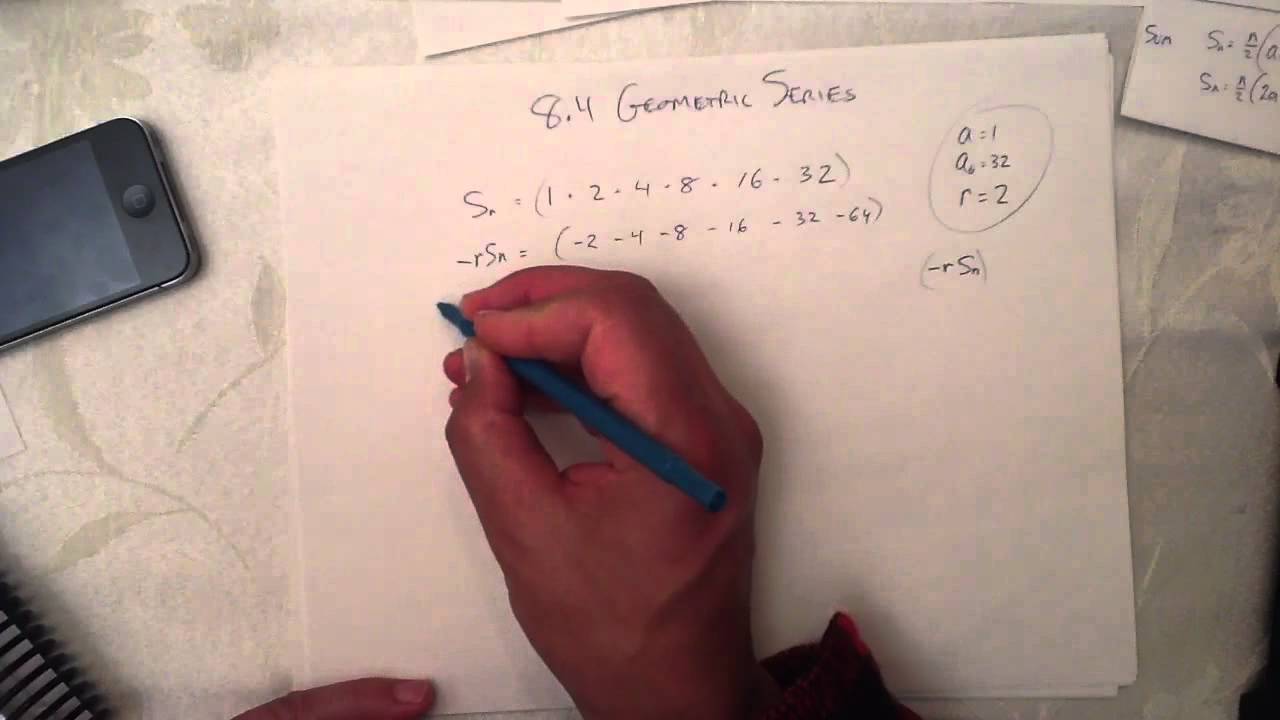 8.4 GEOMETRIC SERIES
Sₙ = (1 · 2 · 4 · 8 · 16 · 32)
-rSₙ = (-2 -4 -8 -16 -32 -64)
a=1
a₆=32
r=2
(-rSₙ)
Sum Sₙ = n/2 (a
Sₙ = n/2 (2a